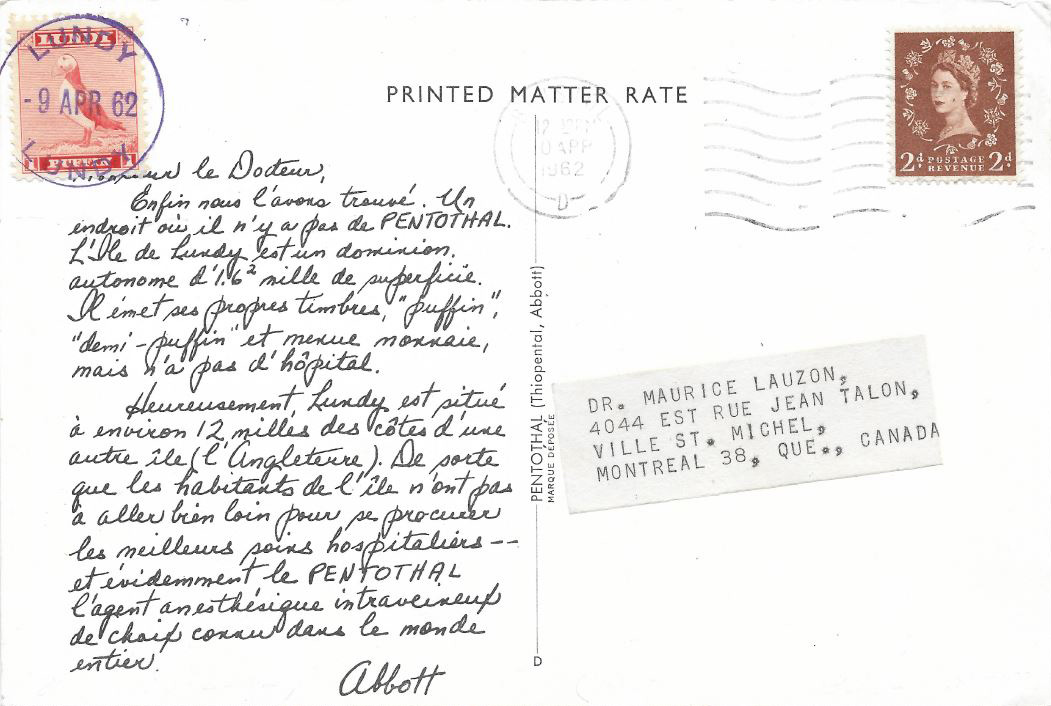 LUNDY
- 9 APR 62
LUNDY
PUFFIN
PRINTED MATTER RATE
APR
1962
-D-
2d POSTAGE REVENUE 2d
le Docteur,
Enfin nous l'avons trouvé. Un
endroit où il n'y a pas de PENTOTHAL.
L'Île de Lundy est un dominion
autonome d'1.6² mille de superficie.
Il émet ses propres timbres, "puffin",
"demi-puffin" et menue monnaie,
mais n'a pas d'hôpital.
Heureusement, Lundy est situé
à environ 12 milles des côtes d'une
autre île (l'Angleterre). De sorte
que les habitants de l'île n'ont pas
à aller bien loin pour se procurer
les meilleurs soins hospitaliers--
et évidemment le PENTOTHAL
l'agent anesthésique intraveineux
de choix connu dans le monde
entier.
Abbott
PENTOTHAL (Thiopental, Abbott)
MARQUE DÉPOSÉE
D
DR. MAURICE LAUZON,
4044 EST RUE JEAN TALON,
VILLE ST. MICHEL,
MONTREAL 38, QUE., CANADA